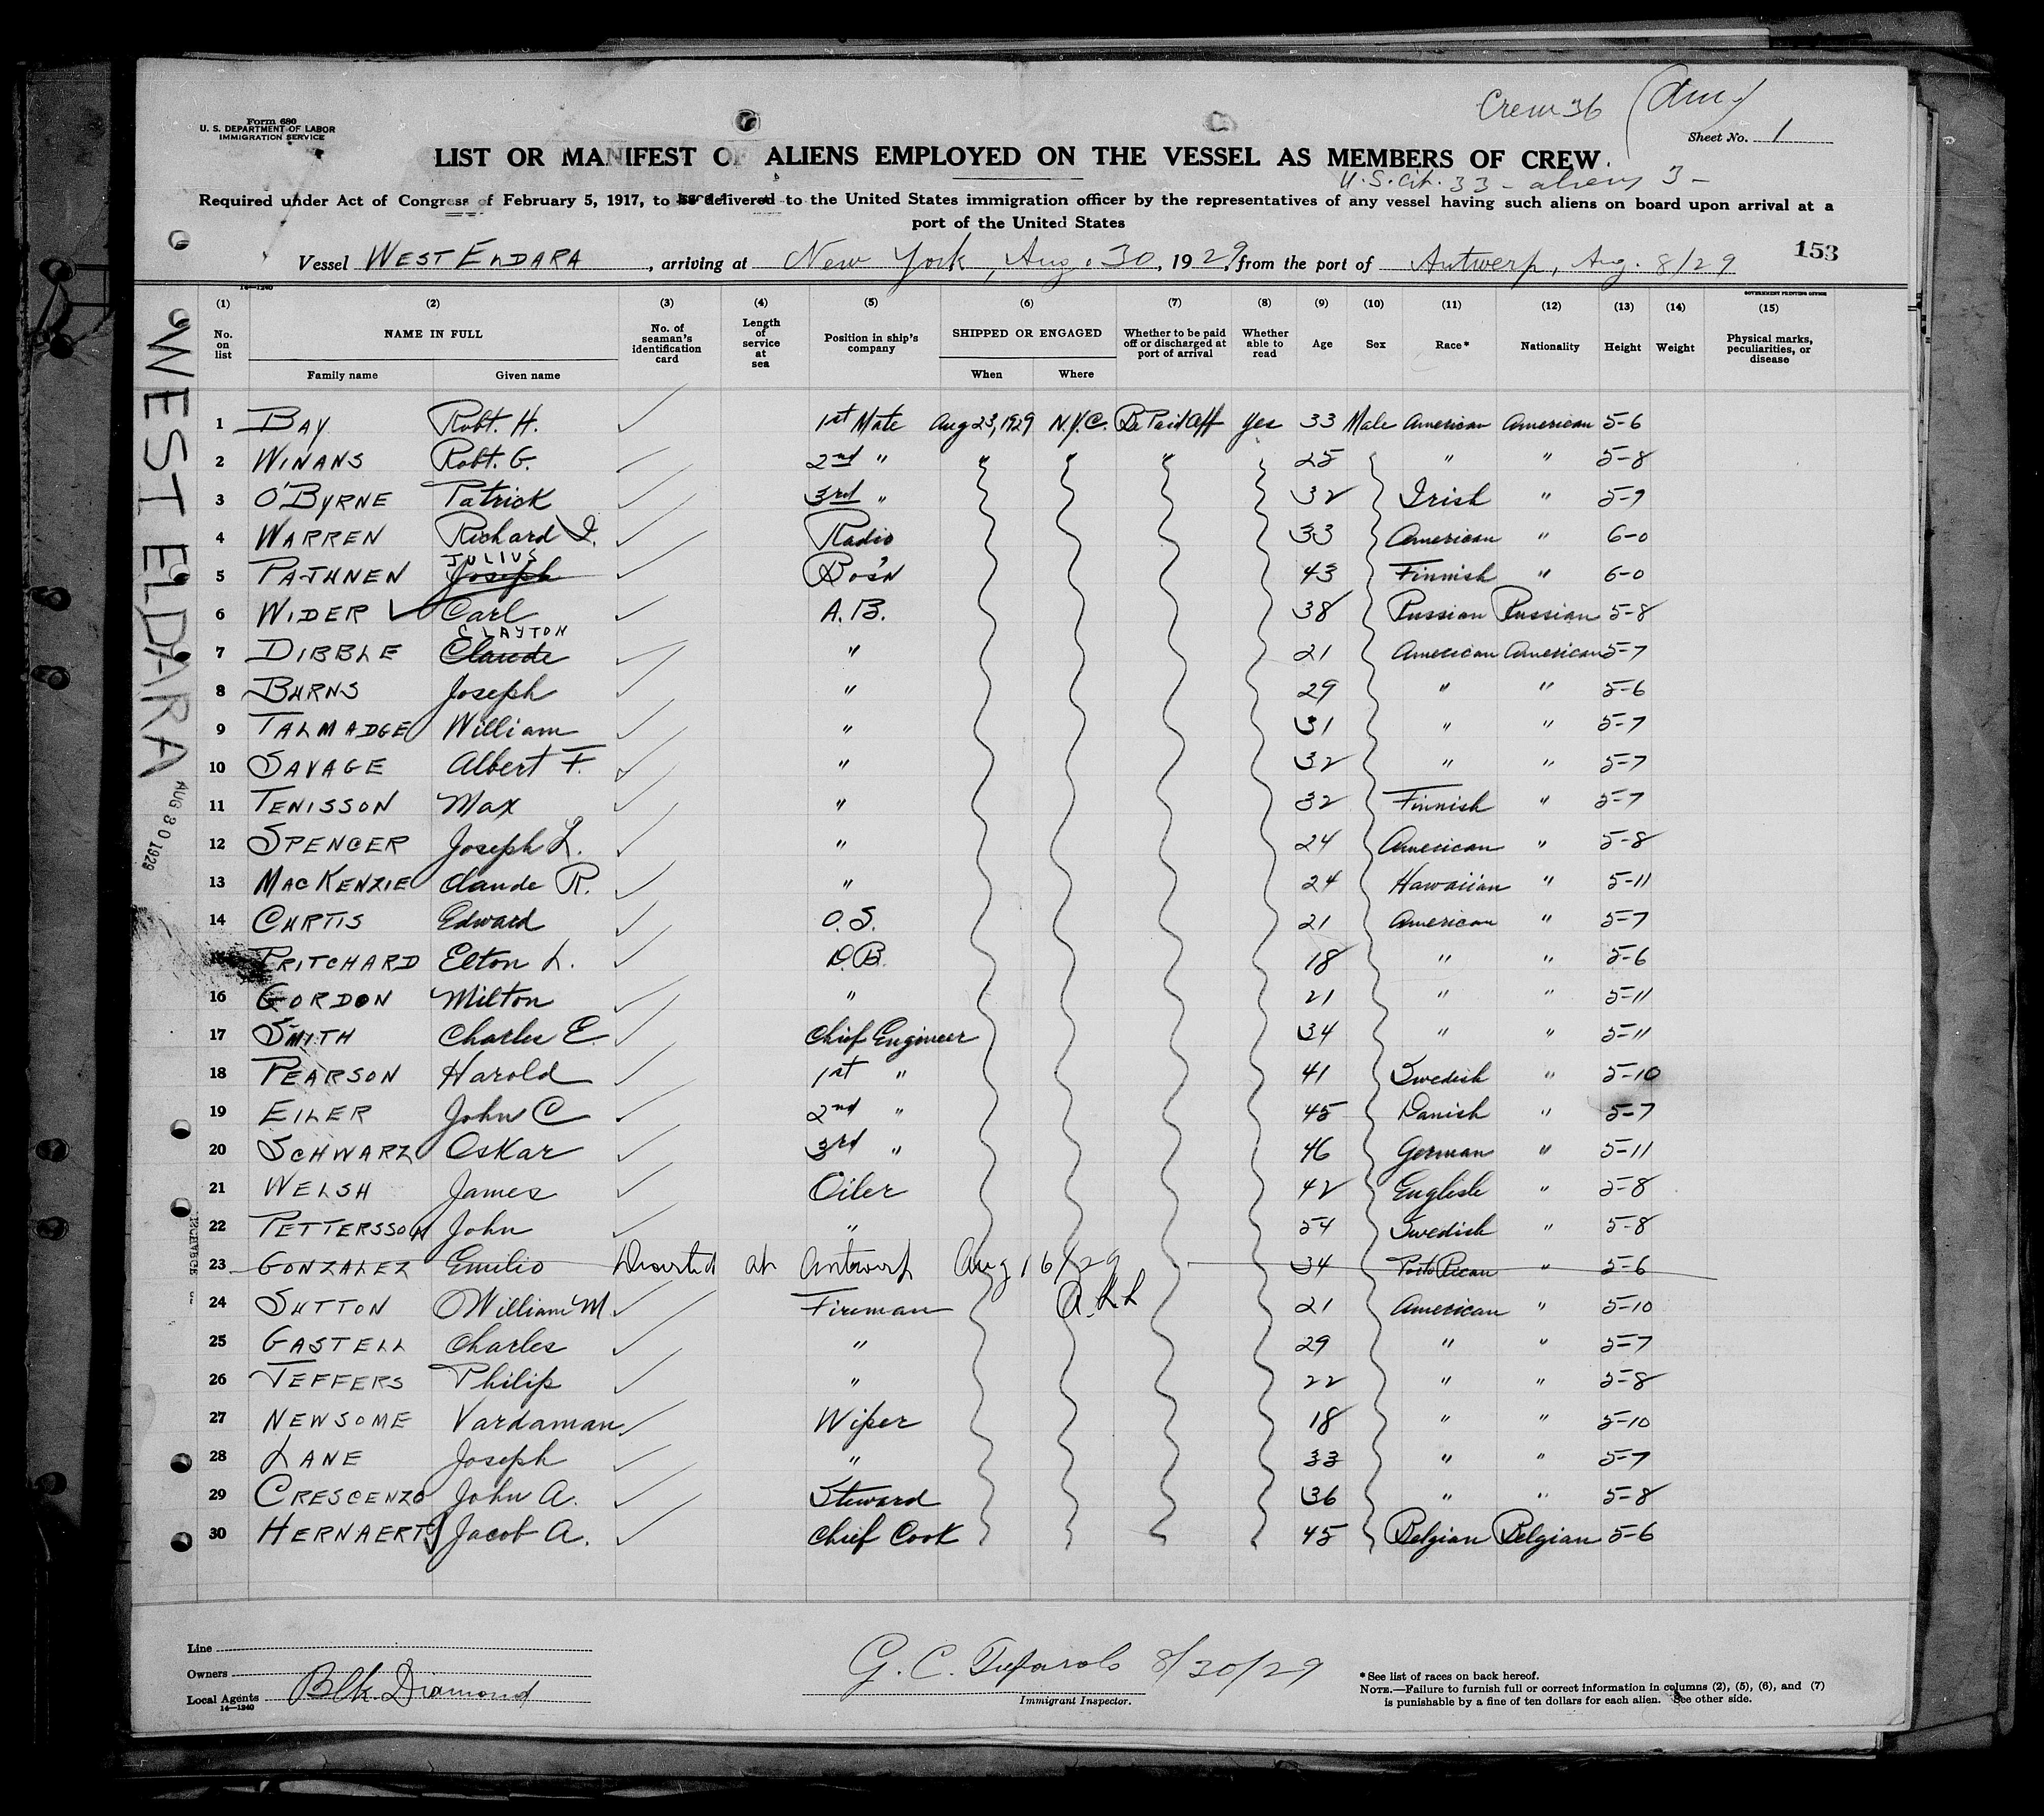 Form 680
U. S. DEPARTMENT OF LABOR
IMMIGRATION SERVICE
Crew 36 (Am)
Sheet No. 1
LIST OR MANIFEST OF ALIENS EMPLOYED ON THE VESSEL AS MEMBERS OF CREW
U.S. Cit. 33 - aliens 3 -
Required under Act of Congress of February 5, 1917, to be delivered to the United States immigration officer by the representatives of any vessel having such aliens on board upon arrival at a
port of the United States
Vessel WEST ELDARA, arriving at New York, Aug. 30, 1929, from the port of Antwerp, Aug. 8/29
153
14—1240
GOVERNMENT PRINTING OFFICE
(1) (2) (3) (4) (5) (6) (7) (8) (9) (10) (11) (12) (13) (14) (15)
No. on list NAME IN FULL No. of seaman's identification card Length of service at sea Position in ship's company SHIPPED OR ENGAGED Whether to be paid off or discharged at port of arrival Whether able to read Age Sex Race* Nationality Height Weight Physical marks, peculiarities, or disease
Family name Given name When Where
1 BAY Robt. H. 1st Mate Aug 23, 1929 N.Y.C. Be Paid Off Yes 33 Male American American 5-6
2 WINANS Robt. G. 2nd " 25 " " 5-8
3 O'BYRNE Patrick 3rd " 32 Irish " 5-9
4 WARREN Richard I. Radio 33 American " 6-0
5 PAJHNEN Joseph JULIUS Bos'n 43 Finnish " 6-0
6 WIDER Carl A.B. 38 Russian Russian 5-8
7 DIBBLE Claude CLAYTON " 21 American American 5-7
8 BURNS Joseph " 29 " " 5-6
9 TALMADGE William " 31 " " 5-7
10 SAVAGE Albert F. " 32 " " 5-7
11 TENISSON Max " 32 Finnish " 5-7
12 SPENCER Joseph L. " 24 American " 5-8
13 MACKENZIE Claude R. " 24 Hawaiian " 5-11
14 CURTIS Edward O.S. 21 American " 5-7
PRITCHARD Elton L. D.B. 18 " " 5-6
16 GORDON Milton " 21 " " 5-11
17 SMITH Charles E. Chief Engineer 34 " " 5-11
18 PEARSON Harold 1st " 41 Swedish " 5-10
19 EILER John C 2nd " 45 Danish " 5-7
20 SCHWARZ Oskar 3rd " 46 German " 5-11
21 WELSH James Oiler 42 English " 5-8
22 PETTERSSON John " 54 Swedish " 5-8
23 GONZALEZ Emilio Deserted at Antwerp Aug 16/29 34 Porto Rican " 5-6
24 SUTTON William M. Fireman 21 American " 5-10
25 GASTELL Charles " 29 " " 5-7
26 JEFFERS Philip " 22 " " 5-8
27 NEWSOME Vardaman Wiper 18 " " 5-10
28 LANE Joseph " 33 " " 5-7
29 CRESCENZO John A. Steward 36 " " 5-8
30 HERNAERTS Jacob A. Chief Cook 45 Belgian Belgian 5-6
WEST ELDARA
AUG 30 1929
Line
Owners
Local Agents Blk. Diamond
14—1240
G. C. 8/30/29
Immigrant Inspector.
*See list of races on back hereof.
NOTE.—Failure to furnish full or correct information in columns (2), (5), (6), and (7)
is punishable by a fine of ten dollars for each alien. See other side.